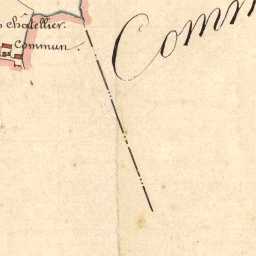 Châtellier.
Commun
Comm